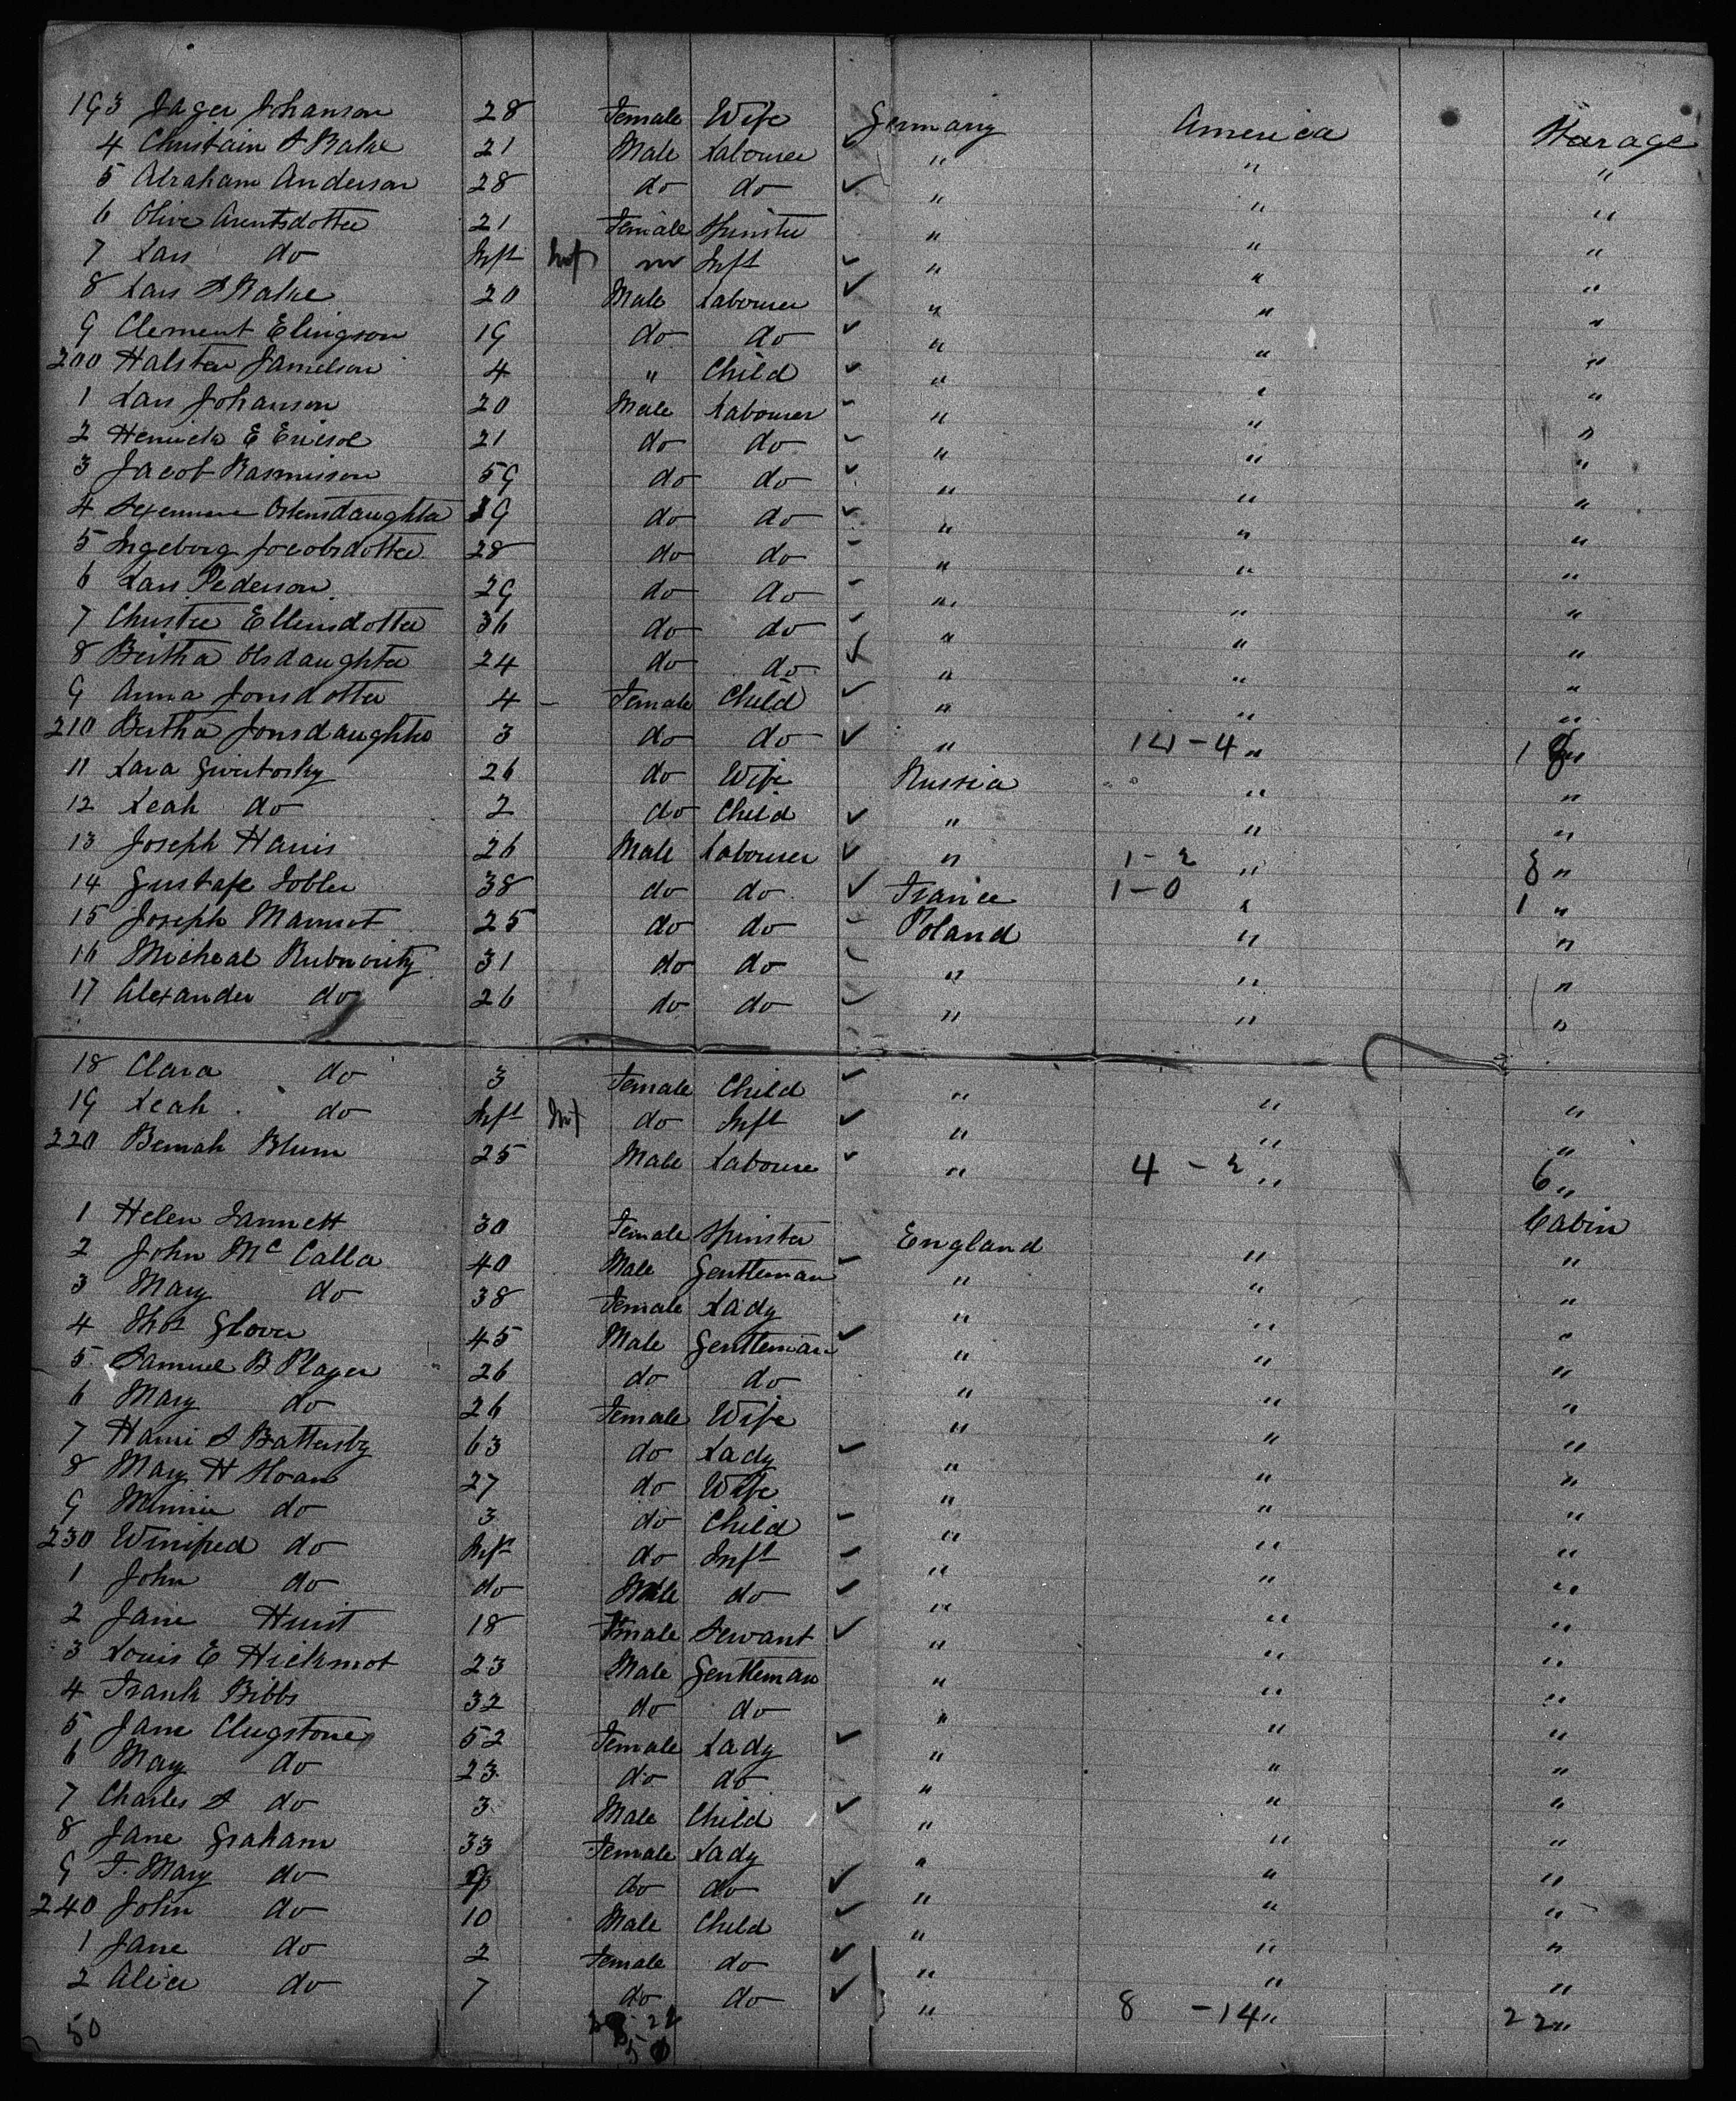 193 Jager Johanson 28 Female Wife Germany America Starage
4 Christain S Balke 21 Male Labourer " " "
5 Abraham Anderson 28 do do " " "
6 Olive Arentsdotter 21 Female Spinster " " "
7 Lars do Inft Inf Inft " " "
8 Lars S Balke 20 Male Labourer " " "
9 Clement Elingson 19 do do " " "
200 Halsten Jamelson 4 " Child " " "
1 Lars Johanson 20 Male Labourer " " "
2 E 21 do do " " "
3 Jacob Rasmusson 59 do do " " "
4 Ostensdaughter 39 do do " " "
5 Ingeborg Jocobsdotter 28 do do " " "
6 Lars Pederson 29 do do " " "
7 Christie Ellensdotter 36 do do " " "
8 Bertha Olsdaughter 24 do do " " "
9 Anna Jonsdotter 4 - Female Child " " "
210 Bertha Jonsdaughter 3 do do " 14 - 4 " 18 "
11 Lara Gwirtosky 26 do Wife Russia " "
12 Leah do 2 do Child " " "
13 Joseph Harris 26 Male Labourer " 1 - 2 " 3 "
14 Gustafe Tobler 38 do do France 1 - 0 " 1 "
15 Joseph Marmot 25 do do Poland " "
16 Micheal 31 do do " " "
17 Alexander do 26 do do " " "
18 Clara do 3 Female Child " " "
19 Leah do Inft Inf do Inft " " "
220 Bernah Blum 25 Male Laboure " 4 - 2 " 6 "
1 Helen Jannett 30 Female Spinster England " Cabin
2 John Mc Calla 40 Male Gentleman " " "
3 Mary do 38 Female Lady " " "
4 Thos Glover 45 Male Gentleman " " "
5 Samuel B Player 26 do do " " "
6 Mary do 26 Female Wife " " "
7 Harri S Battersby 63 do Lady " " "
8 Mary H Sloan 27 do Wife " " "
9 Minnie do 3 do Child " " "
230 Winifred do Inft do Inft " " "
1 John do do Male do " " "
2 Jane Hurst 18 Female Servant " " "
3 Louis E Hickmot 23 Male Gentleman " " "
4 Frank Bibbs 32 do do " " "
5 Jane Clugstone 52 Female Lady " " "
6 Mary do 23 do do " " "
7 Charles S do 3 Male Child " " "
8 Jane Graham 33 Female Lady " " "
9 F. Mary do do do " " "
240 John do 10 Male Child " " "
1 Jane do 2 Female do " " "
2 Alice do 7 do do " 8 - 14 " 22 "
50 28 22
50